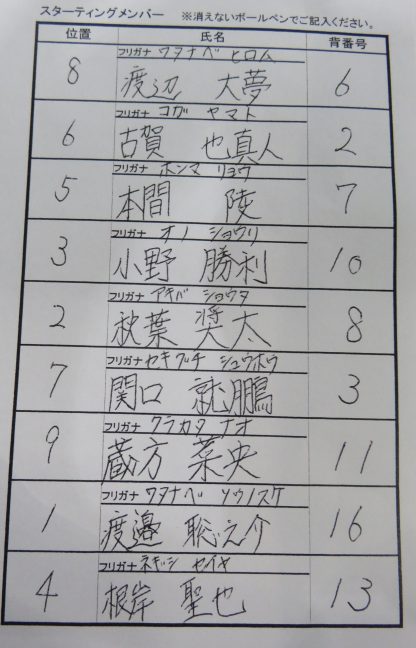 スターティングメンバー ※消えないボールペンでご記入ください。
位置 氏名 背番号
フリガナ ワタナベ ヒロム
8 渡辺 大夢 6
フリガナ コガ ヤマト
6 古賀 也真人 2
フリガナ ホンマ リョウ
5 本間 陵 7
フリガナ オノ ショウリ
3 小野 勝利 10
フリガナ アキバ ショウタ
2 秋葉 奨太 8
フリガナ セキグチ シュウホウ
7 関口 就鵬 3
フリガナ クラカタ ナオ
9 蔵方 菜央 11
フリガナ ワタナベ ソウノスケ
1 渡邉 聡之介 16
フリガナ ネギシ セイヤ
4 根岸 聖也 13